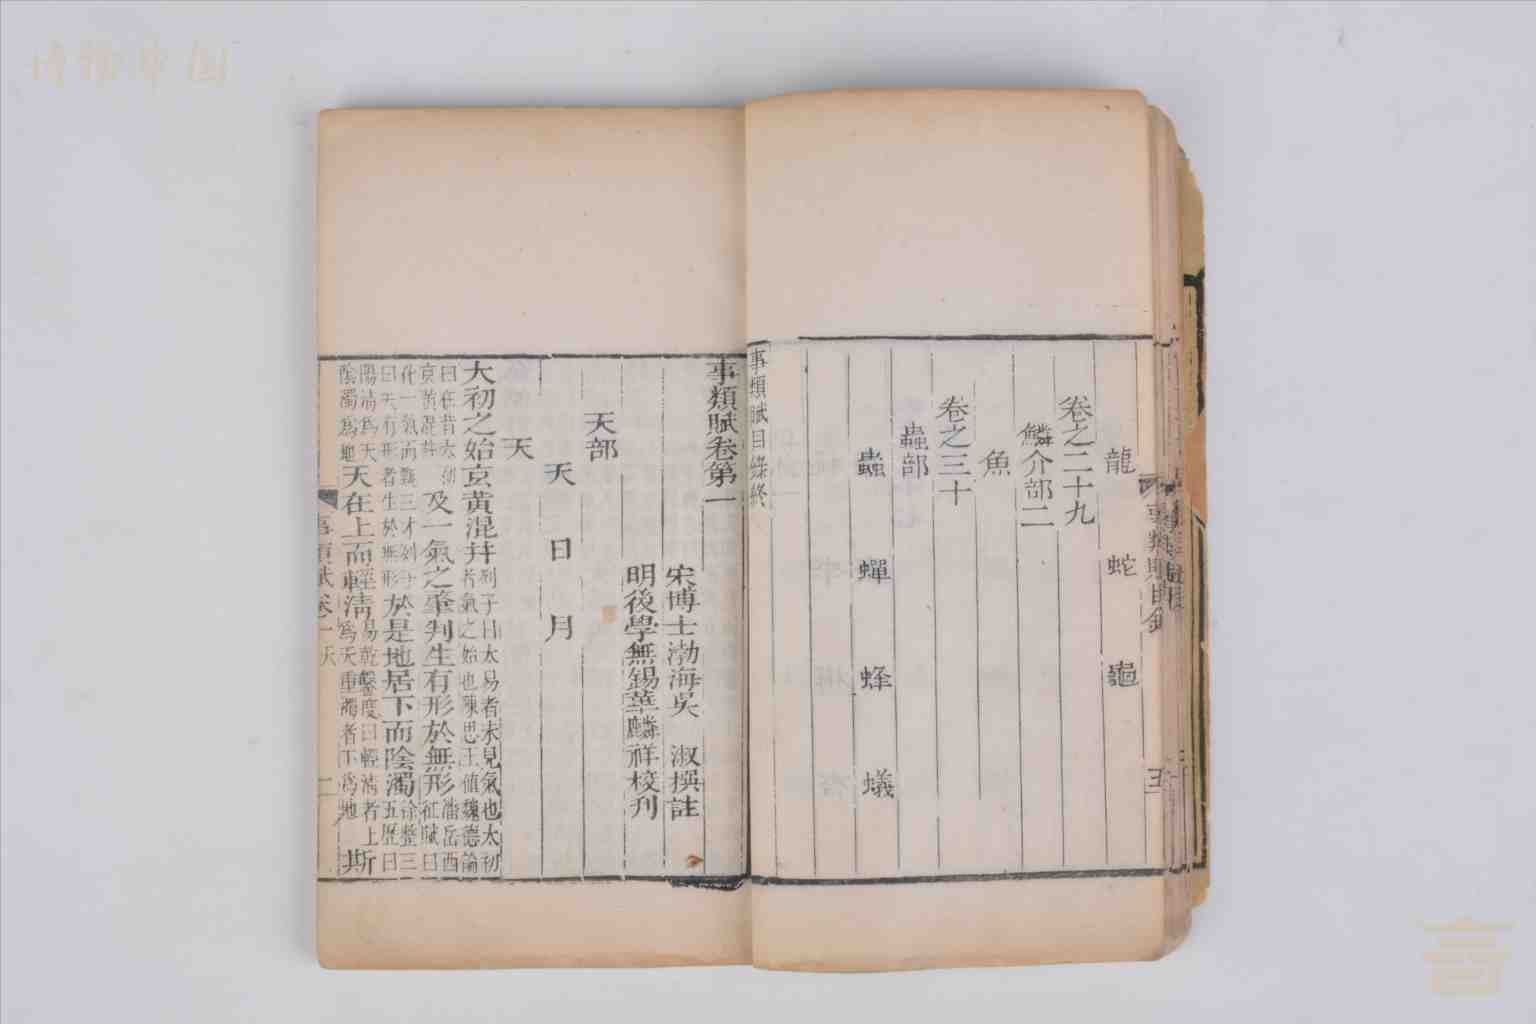 博物中国
龍 蛇 龜
卷之二十九
鱗介部二
魚
卷之三十
蟲部
蟲 蟬 蜂 蟻
事類賦目錄終
事類賦目錄
五
事類賦卷第一
宋博士渤海吳 淑撰註
明後學無錫華麟祥校刊
天部
天 日 月
天
太初之始玄黃混并列子曰太易者未見氣也太初
者氣之始也陳思王植魏德論
曰在昔太初
玄黃混并及一氣之肇判生有形於無形潘岳西
征賦曰
化一氣而甄三才徐整三
五歷曰
曰天有形者生於無形於是地居下而陰濁
陽清為天
陰濁為地天在上而輕清易乾鑿度曰輕清者上
為天重濁者下為地斯
事類賦卷一 天